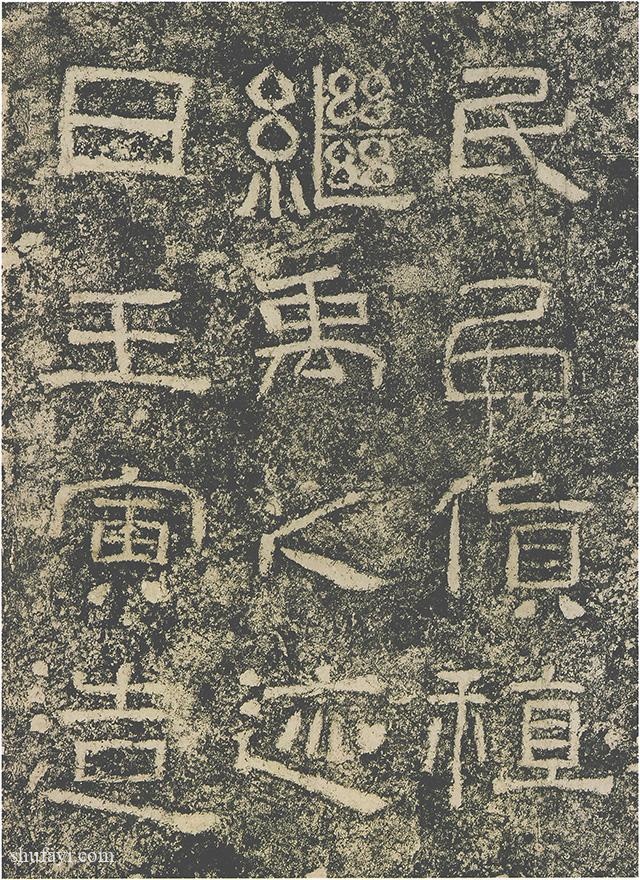 民以貨稙
繼禹之迹
日壬寅造
shufayi.com